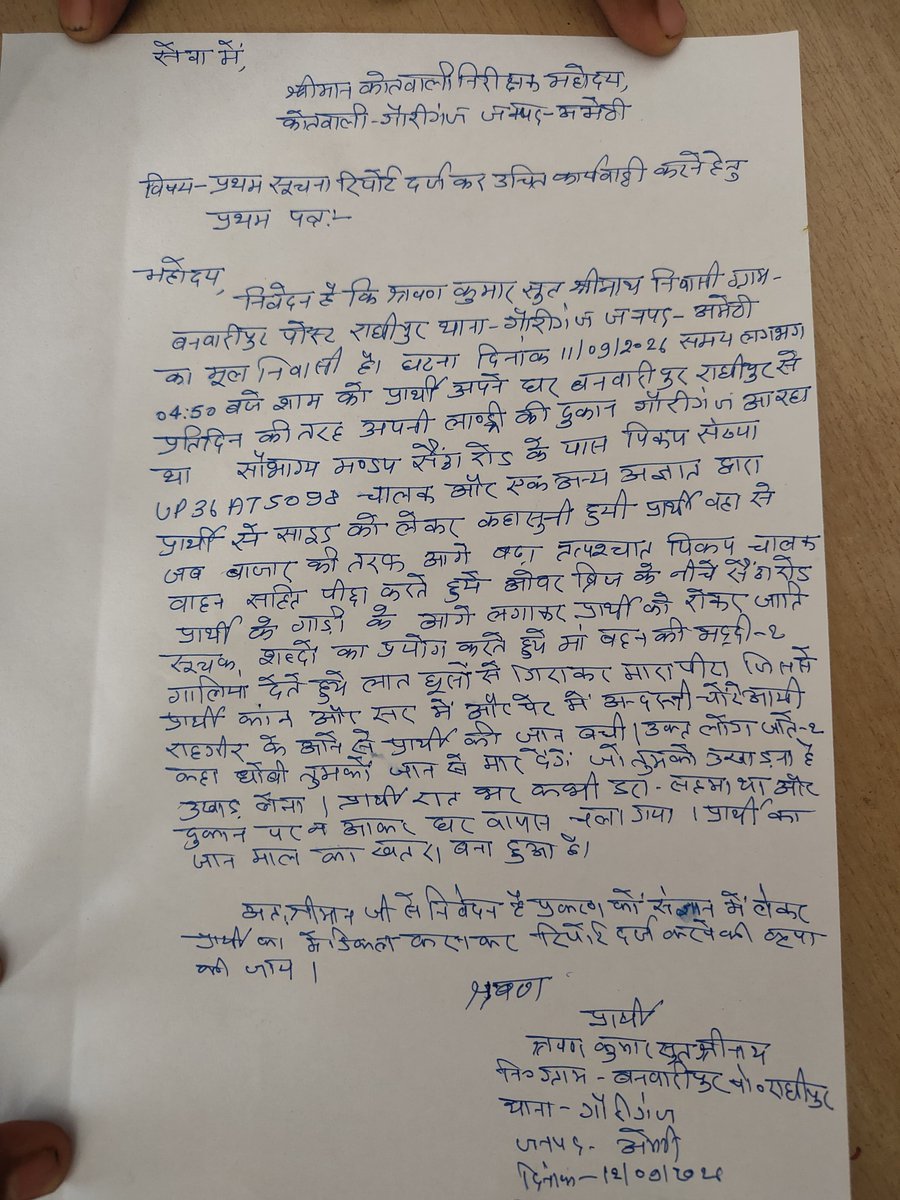 सेवा में,
श्रीमान कोतवाली निरीक्षक महोदय,
कोतवाली-गौरीगंज जनपद-अमेठी
विषय-प्रथम सूचना रिपोर्ट दर्ज कर उचित कार्यवाही करने हेतु
प्रथम पत्र:-
महोदय,
निवेदन है कि श्रवण कुमार सुत श्रीनाथ निवासी ग्राम-
बनवारीपुर पोस्ट राघीपुर थाना-गौरीगंज जनपद-अमेठी
का मूल निवासी है। घटना दिनांक 11/09/2026 समय लगभग
04:50 बजे शाम को प्रार्थी अपने घर बनवारीपुर राघीपुर से
प्रतिदिन की तरह अपनी लाण्ड्री की दुकान गौरीगंज आ रहा
था सौभाग्य मण्डप सैंठा रोड के पास पिकप संख्या
UP36AT5098 चालक और एक अन्य अज्ञात द्वारा
प्रार्थी से साइड को लेकर कहासुनी हुयी प्रार्थी वहा से
जब बाजार की तरफ आगे बढ़ा तत्पश्चात पिकप चालक
वाहन सहित पीछा करते हुये ओवर ब्रिज के नीचे सैंठा रोड
प्रार्थी के गाड़ी के आगे लगाकर प्रार्थी को रोकर जाति
सूचक, शब्दों का प्रयोग करते हुये मां बहन की भद्दी-2
गालिया देते हुये लात घूसों से गिराकर मारा पीटा जिससे
प्रार्थी कान और सर में और पेट में अन्दरूनी चोंटे आयी
राहगीर के आने से प्रार्थी की जान बची। उक्त लोग जाते-2
कहा धोबी तुमको जान से मार देंगे जो तुमको उखाड़ना है
उखाड़ लेना। प्रार्थी रात भर डरा-सहमा था और
दुकान पर न आकर घर वापस चला गया। प्रार्थी का
जान माल का खतरा बना हुआ है।
अतः श्रीमान जी से निवेदन है प्रकरण को संज्ञान में लेकर
प्रार्थी का मेडिकल कराकर रिपोर्ट दर्ज करने की कृपा
की जाय।
श्रवण
प्रार्थी
श्रवण कुमार सुत श्रीनाथ
नि० ग्राम-बनवारीपुर पो० राघीपुर
थाना-गौरीगंज
जनपद-अमेठी
दिनांक-12/09/2026